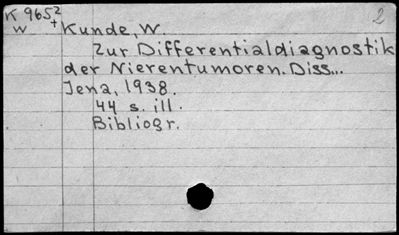 K 965² 2
W + Kunde, W.
Zur Differentialdiagnostik
der Nierentumoren. Diss...
Jena, 1938.
44 s. ill.
Bibliogr.